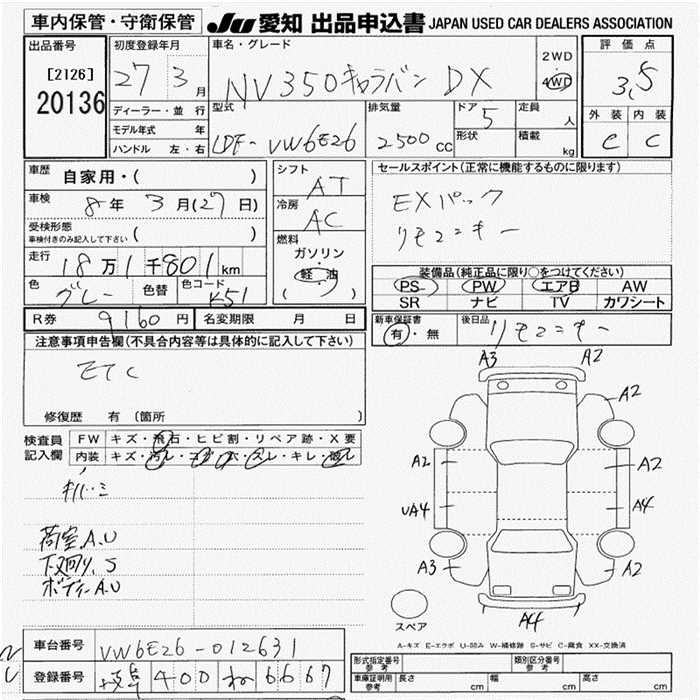 車内保管・守衛保管 JU愛知 出品申込書 JAPAN USED CAR DEALERS ASSOCIATION
出品番号 初度登録年月 車名・グレード 評価点
[2126] 27 3月 NV350キャラバン DX 2WD 4WD 3.5
20136 ディーラー・並行 型式 排気量 ドア 5 定員 人 外装 内装
モデル年式 年 LDF-VW6E26 2500cc 形状 積載 e c
ハンドル 左・右 kg
車歴 自家用・( ) シフト AT セールスポイント(正常に機能するものに限ります)
車検 8年 3月(27日) 冷房 AC EXパック
受検形態 リモコンキー
車検付きのみ記入して下さい( ) 燃料 ガソリン・軽油 ( )
走行 18万1千801km 装備品(純正品に限り○をつけてください)
色 グレー 色替 色コード K51 PS PW エアB AW
SR ナビ TV カワシート
R券 9160円 名変期限 月 日 新車保証書 有・無 後日品 リモコンキー
注意事項申告欄(不具合内容等は具体的に記入して下さい)
ETC
修復歴 有 (箇所 )
A3 A2
A2
検査員 FW キズ・飛石・ヒビ割・リペア跡・X要
記入欄 内装 キズ・汚レ・コゲ・穴・スレ・キレ・
A2 A2
UA4 A4
荷室A.U
下廻り、S
A3 A2
ボディーA.U
A4
スペア
A-キズ E-エクボ U-凹み W-補修跡 S-サビ C-腐食 XX-交換済
車台番号 VW6E26-012631
登録番号 岐阜 400 ね 6667
形式指定番号 参考 類別区分番号 参考
車庫証明用 参考 長さ cm 幅 cm 高さ cm